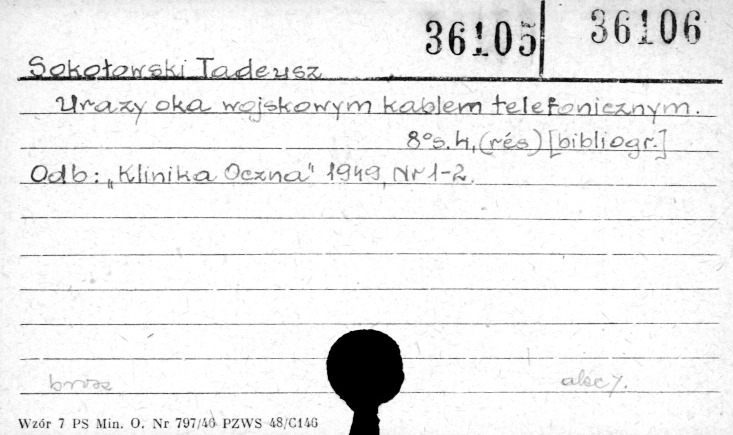 36105 36106
Sokołowski Tadeusz
Urazy oka wojskowym kablem telefonicznym.
8° s. 4, (rés) [bibliogr.]
Odb: „Klinika Oczna" 1949, Nr 1-2.
brosz
Wzór 7 PS Min. O. Nr 797/46 PZWS 48/C146